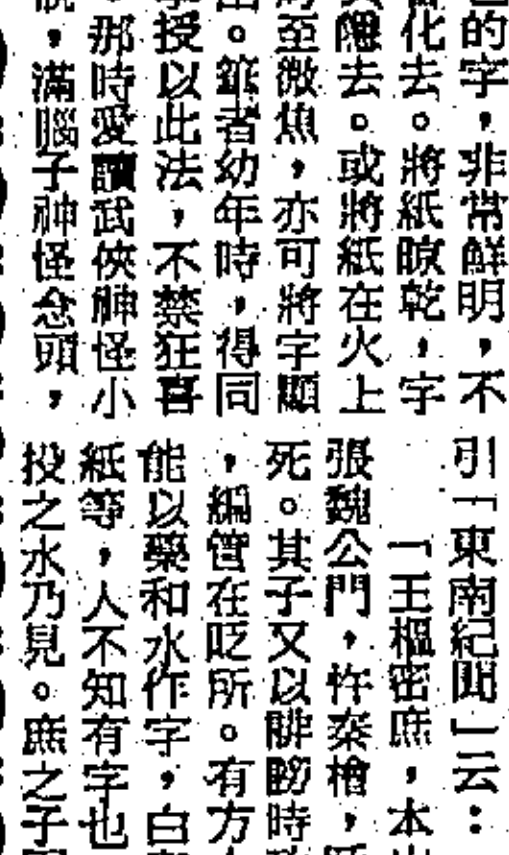 的字，非常鮮明，不
化去。將紙晾乾，字
隱去。或將紙在火上
至微焦，亦可將字顯
。筆者幼年時，得同
授以此法，不禁狂喜
那時愛讀武俠神怪小
，滿腦子神怪念頭，
引「東南紀聞」云：
「王樞密庶，本
張魏公門，忤秦檜，
死。其子又以誹謗時
，編管在貶所。有方
能以藥和水作字，白
紙等，人不知有字也
投之水乃見。庶之子